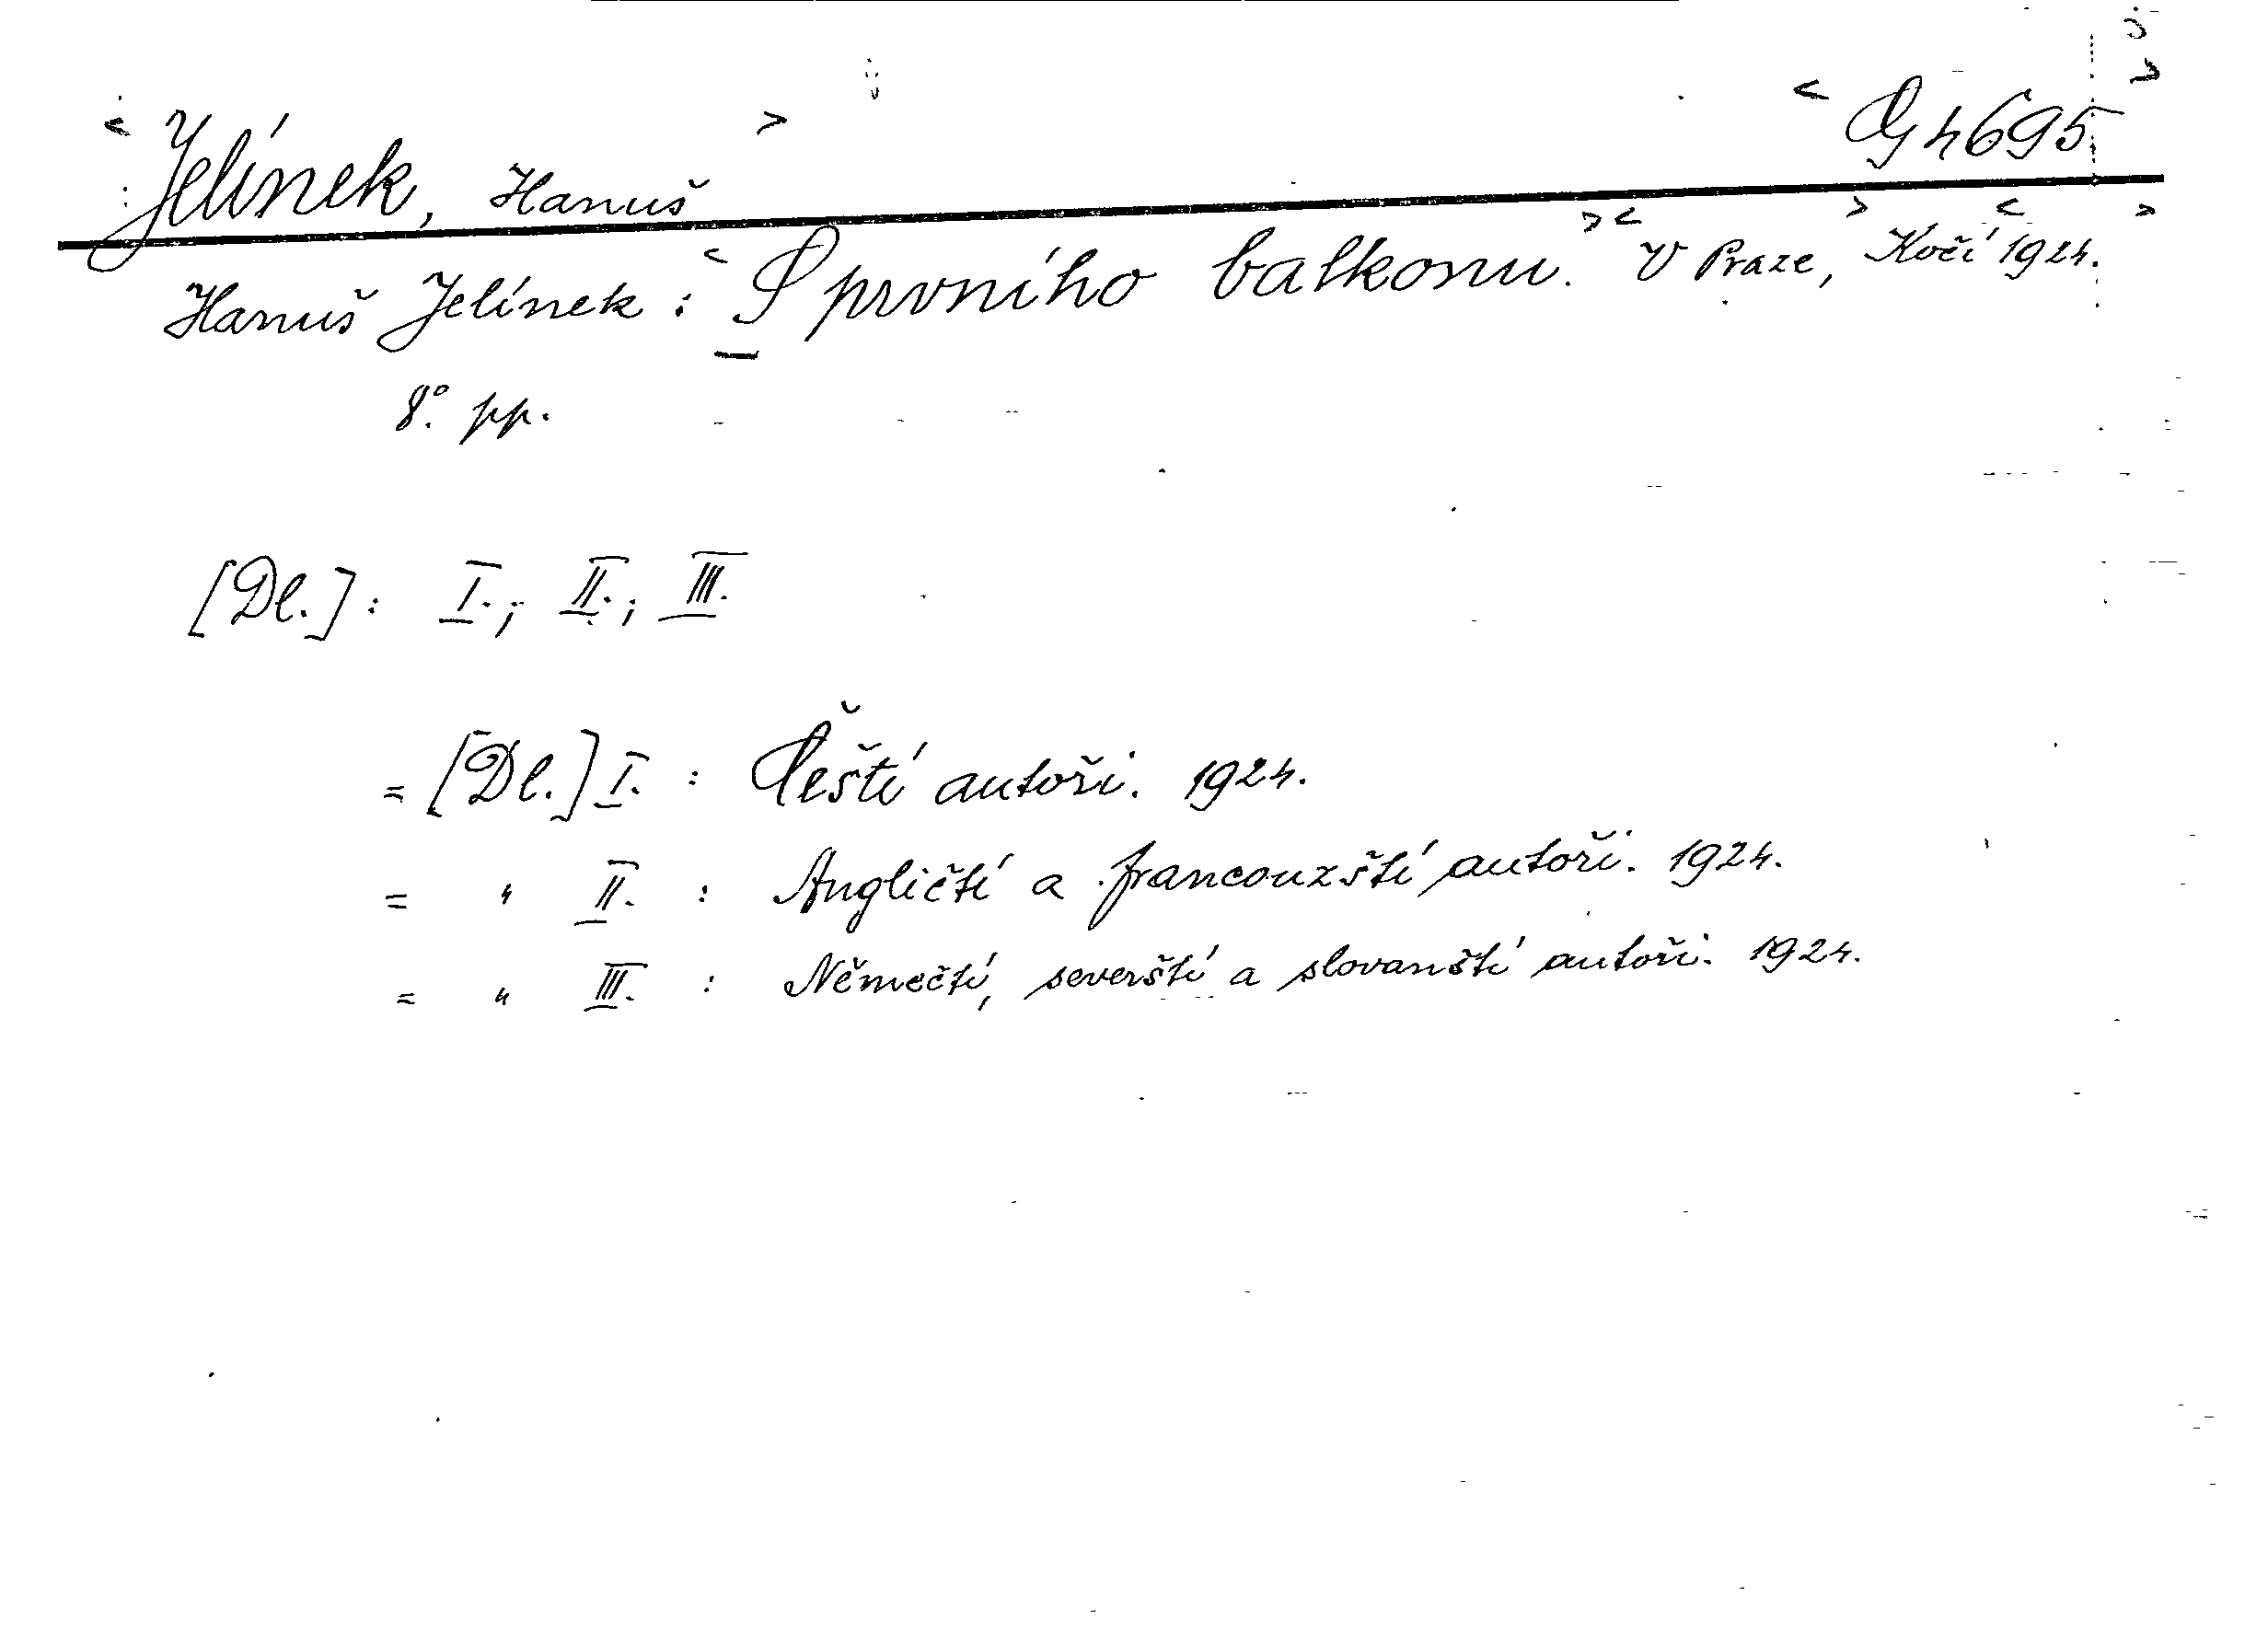 < Jelínek, Hanuš > < G 4695 >
Hanuš Jelínek: < S prvního balkonu. > < V Praze, Kočí > < 1924. >
8°. pp.
[Dl.]: I.; II.; III.
= [Dl.] I. : Čeští autoři. 1924.
= " II. : Angličtí a francouzští autoři. 1924.
= " III. : Němečtí, severští a slovanští autoři. 1924.